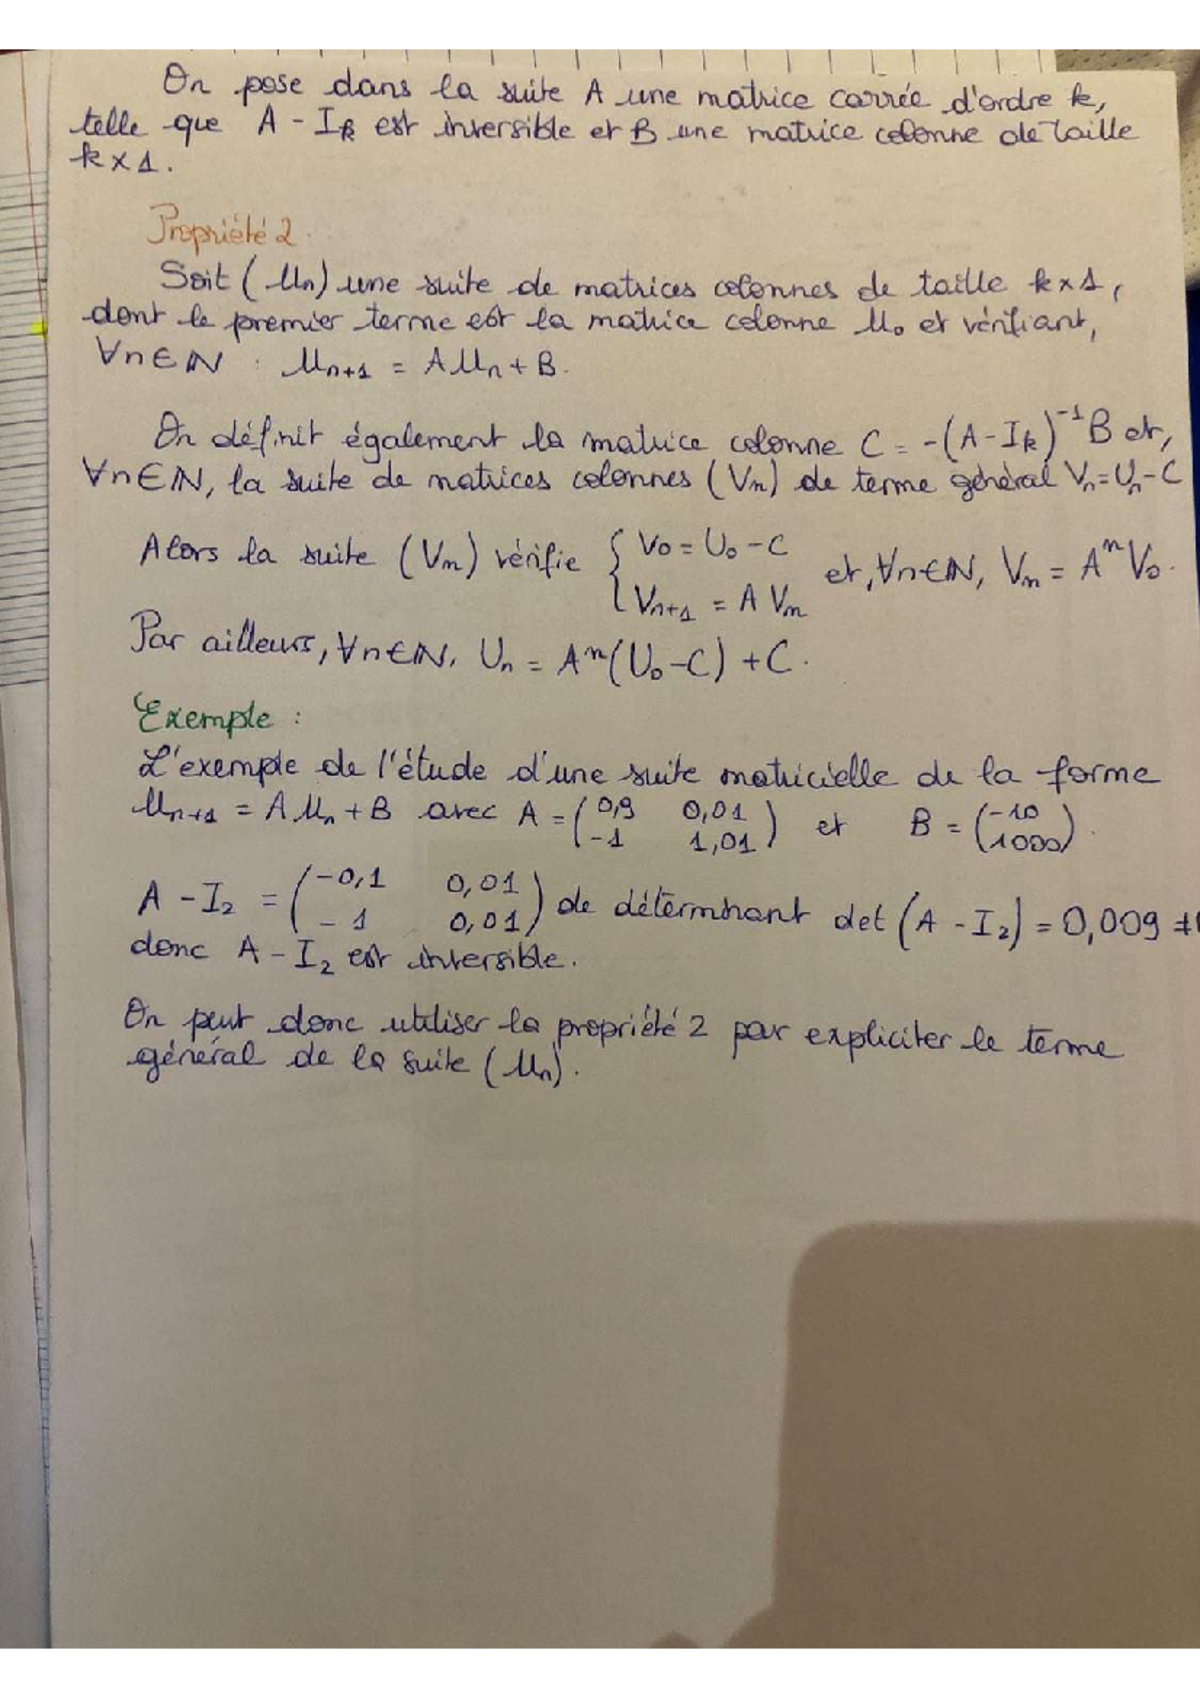 On pose dans la suite A une matrice carrée d'ordre k,
telle que A - I_k est inversible et B une matrice colonne de taille
k x 1.
Propriété 2.
Soit (U_n) une suite de matrices colonnes de taille k x 1,
dont le premier terme est la matrice colonne U_0 et vérifiant,
∀n ∈ ℕ : U_{n+1} = A U_n + B.
On définit également la matrice colonne C = -(A - I_k)^{-1} B et,
∀n ∈ ℕ, la suite de matrices colonnes (V_n) de terme général V_n = U_n - C
Alors la suite (V_n) vérifie { V_0 = U_0 - C ; V_{n+1} = A V_n et, ∀n ∈ ℕ, V_n = A^n V_0.
Par ailleurs, ∀n ∈ ℕ, U_n = A^n (U_0 - C) + C.
Exemple :
L'exemple de l'étude d'une suite matricielle de la forme
U_{n+1} = A U_n + B avec A = (0,9 0,01 ; -1 1,01) et B = (-10 ; 1000).
A - I_2 = (-0,1 0,01 ; -1 0,01) de déterminant det (A - I_2) = 0,009 ≠ 0
donc A - I_2 est inversible.
On peut donc utiliser la propriété 2 pour expliciter le terme
général de la suite (U_n).